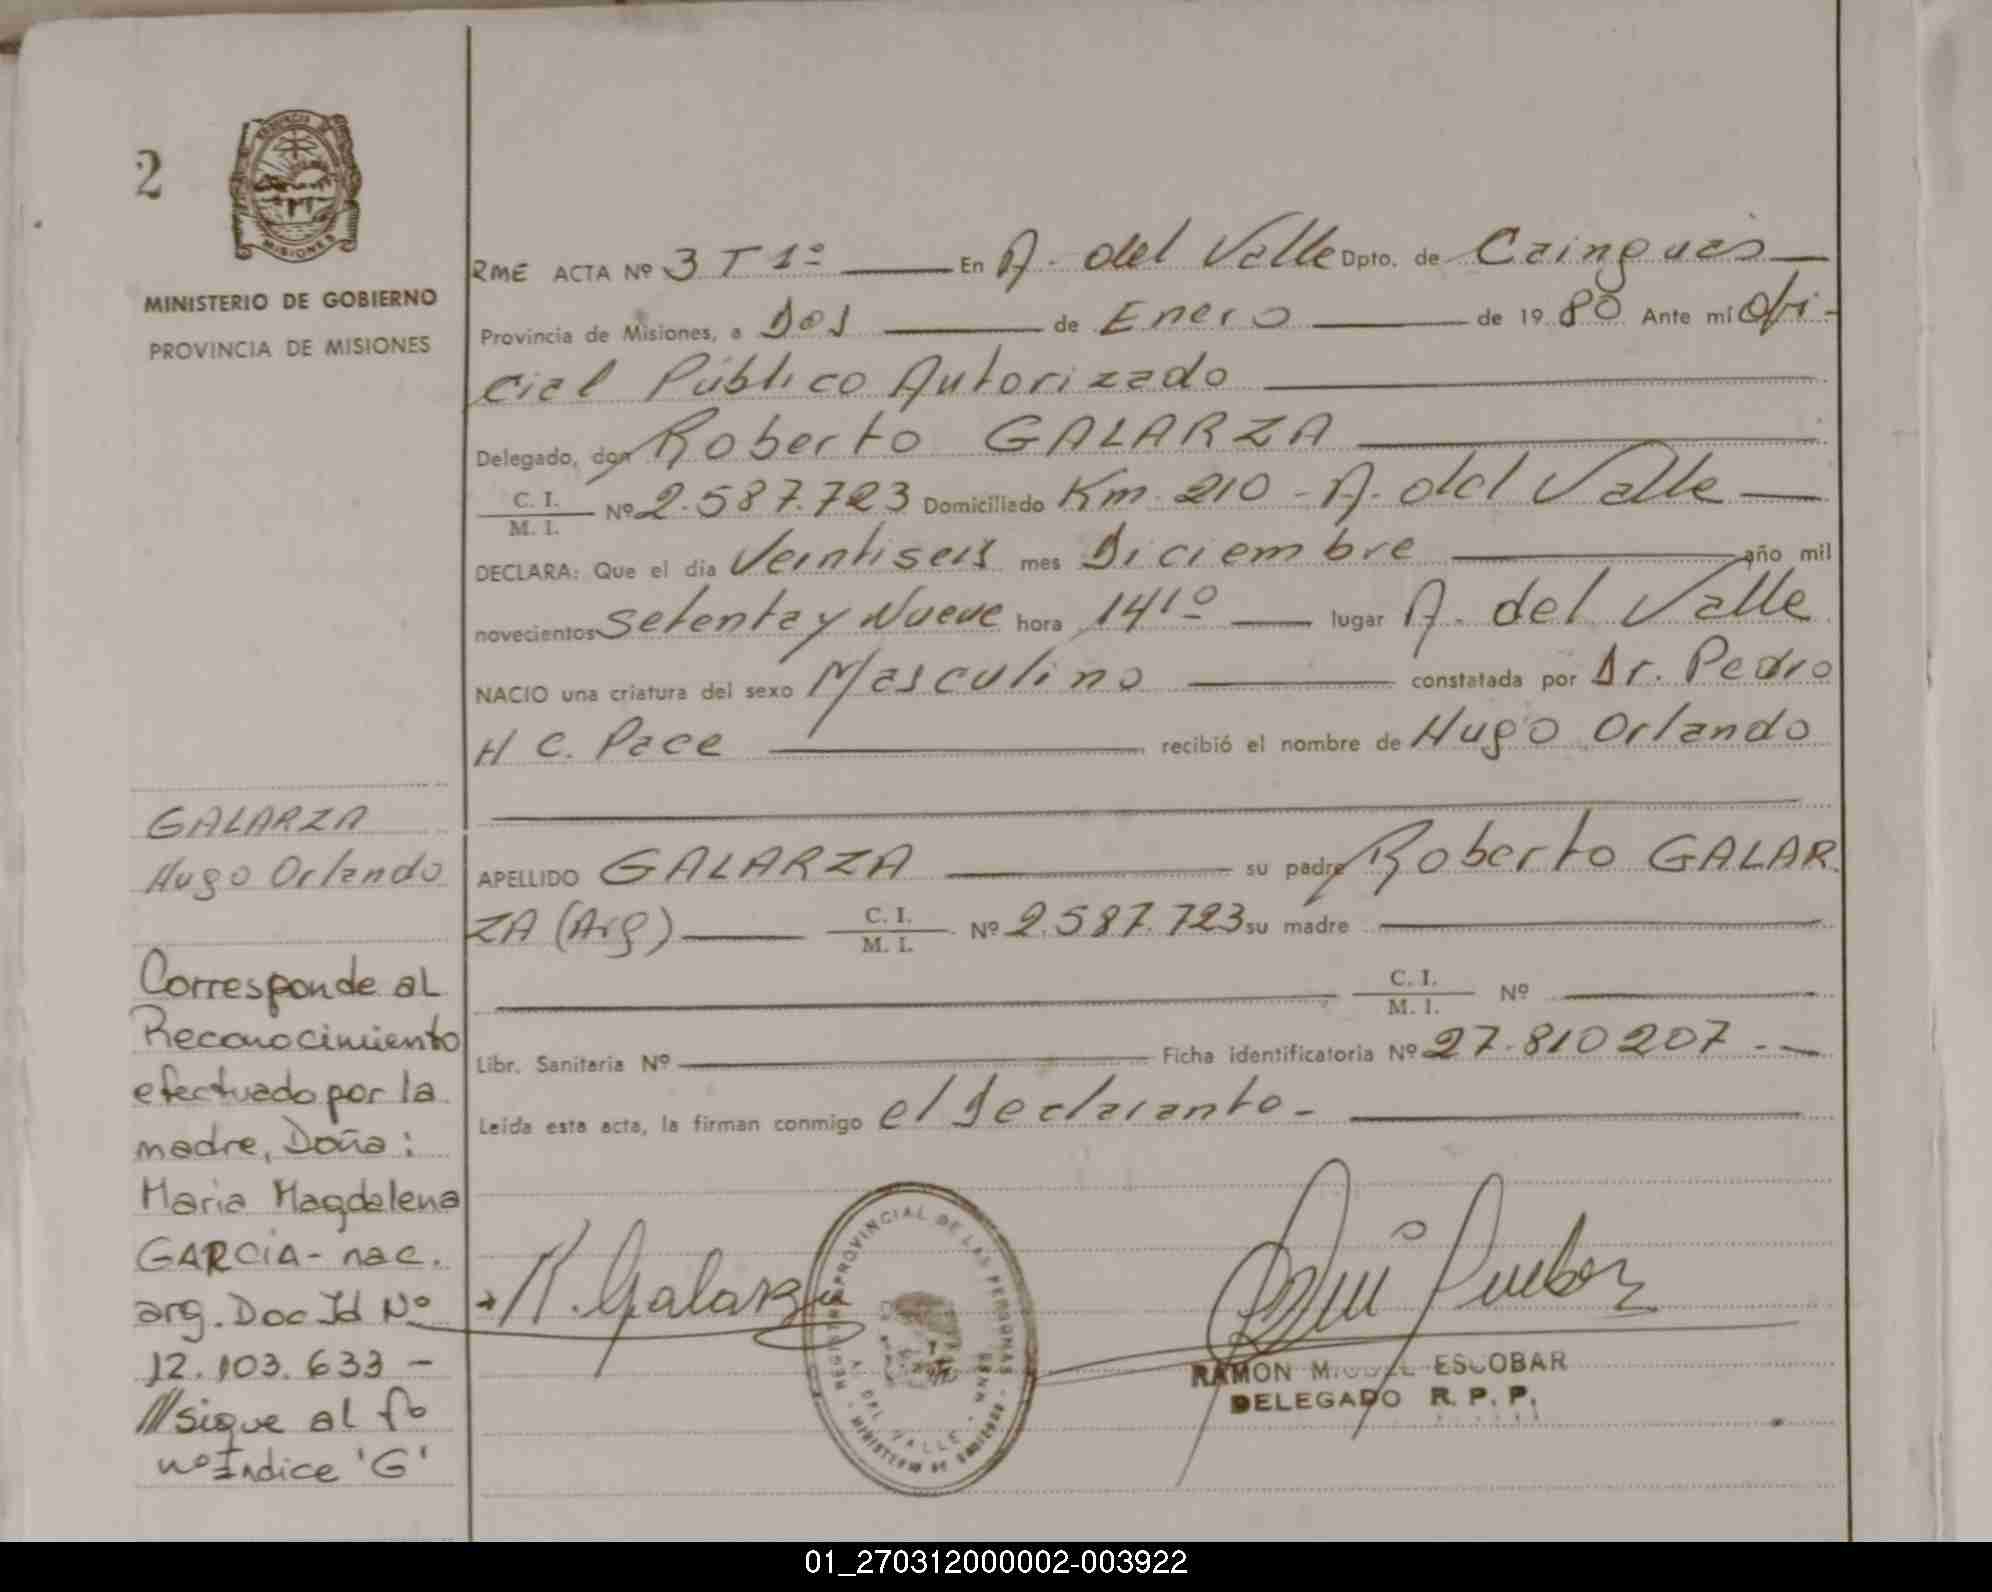 2
PROVINCIA DE
MISIONES
MINISTERIO DE GOBIERNO
PROVINCIA DE MISIONES
RME ACTA Nº 3 T 1º En A. del Valle Dpto. de Cainguas
Provincia de Misiones, a Dos de Enero de 1980 Ante mi Ofi-
cial Público Autorizado
Delegado, don Roberto GALARZA
C. I.
M. I. Nº 2.587.723 Domiciliado Km. 210 - A. del Valle
DECLARA: Que el día Veintiseis mes Diciembre año mil
novecientos Setenta y Nueve hora 14¹⁰ lugar A. del Valle
NACIO una criatura del sexo Masculino constatada por Dr. Pedro
H C. Pace recibió el nombre de Hugo Orlando
GALARZA
Hugo Orlando
APELLIDO GALARZA su padre Roberto GALAR
ZA (Arg) C. I.
M. I. Nº 2.587.723 su madre
C. I.
M. I. Nº
Libr. Sanitaria Nº Ficha identificatoria Nº 27.810207 -
Leída esta acta, la firman conmigo el Declarante -
Corresponde al
Reconocimiento
efectuado por la
madre, Doña:
Maria Magdalena
GARCIA - nac.
arg. Doc Id Nº
12.103.633 -
///sigue al fº
nº Indice 'G'
R. Galarza
PROVINCIAL DE LAS PERSONAS
A. DEL VALLE
MINISTERIO DE GOBIERNO
RAMON MIGUEL ESCOBAR
DELEGADO R. P. P.
01_270312000002-003922